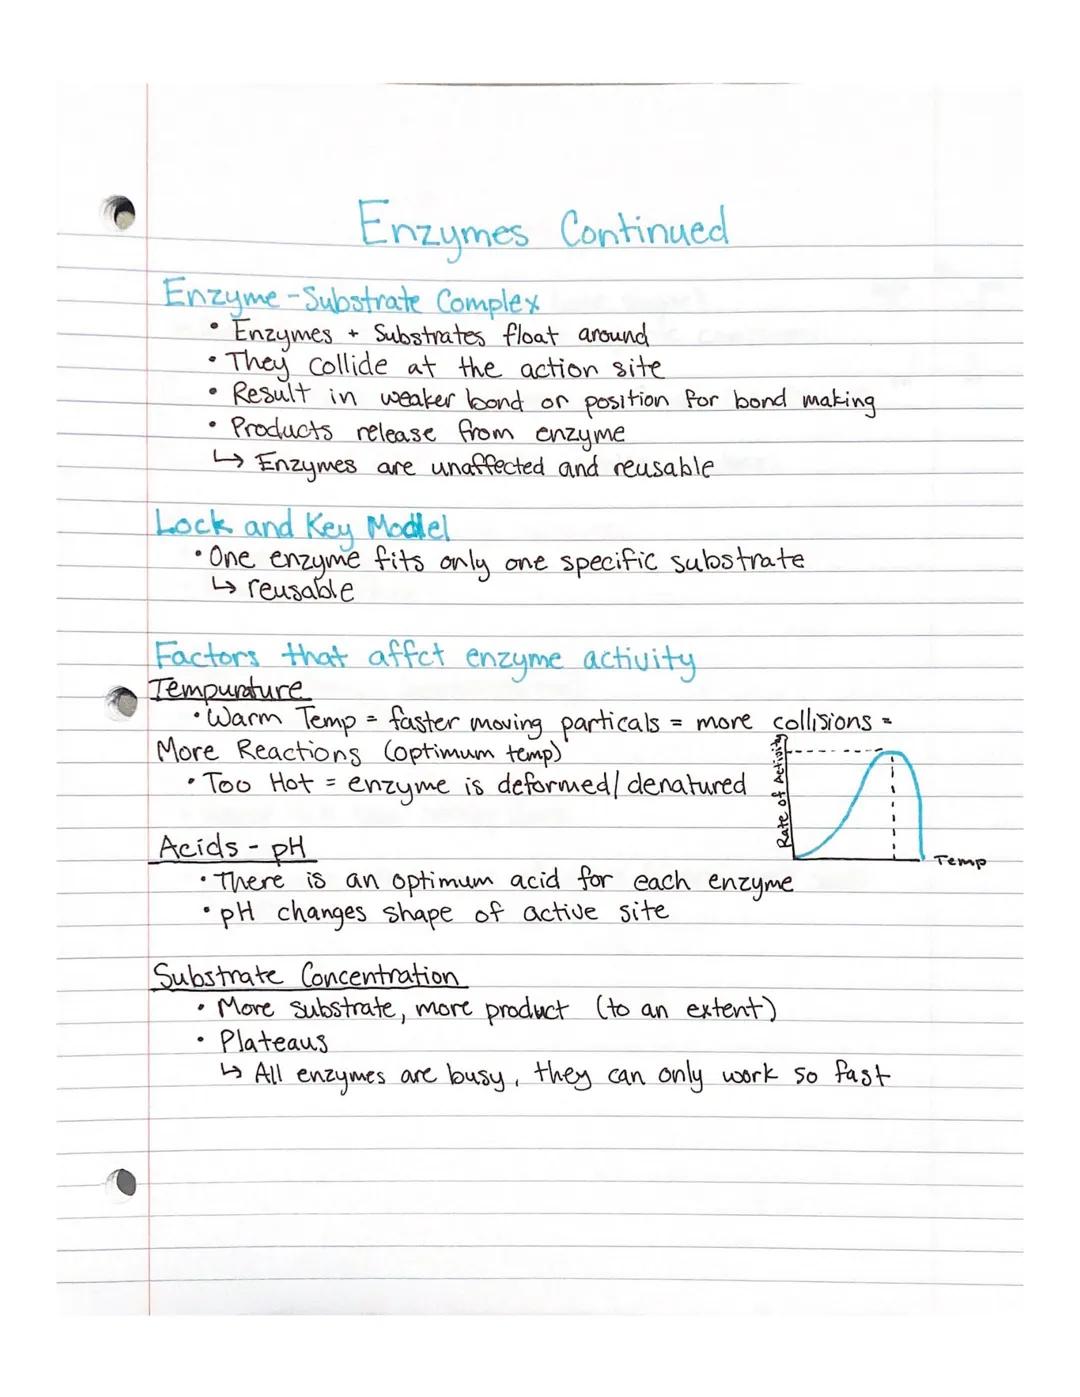 Enzymes Continued
Enzyme-Substrate Complex
• Enzymes + Substrates float around
• They collide at the action site
• Result in weaker bond or position for bond making
• Products release from enzyme
↳ Enzymes are unaffected and reusable
Lock and Key Model
• One enzyme fits only one specific substrate
↳ reusable
Factors that affct enzyme activity
Tempurature
• Warm Temp = faster moving particals = more collisions =
More Reactions (optimum temp)
• Too Hot = enzyme is deformed/denatured
Rate of Activity
Temp
Acids - pH
• There is an optimum acid for each enzyme
• pH changes shape of active site
Substrate Concentration
• More substrate, more product (to an extent)
• Plateaus
↳ All enzymes are busy, they can only work so fast